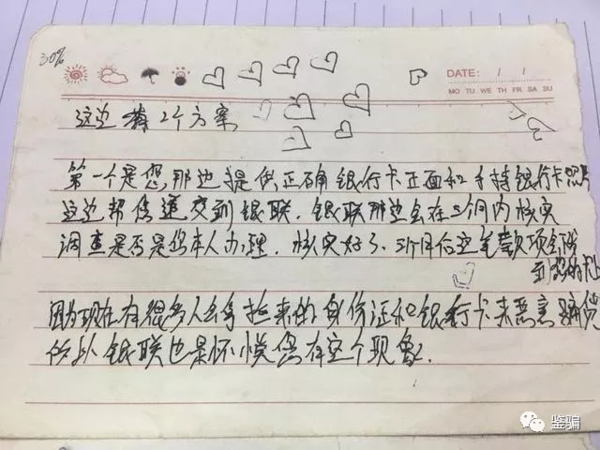 30%
DATE: / /
MO TU WE TH FR SA SU
这边有2个方案
第一个是您那边提供正确银行卡正面和手持银行卡照片
这边帮您递交到银联.银联那边会在3个月内核实
调查是否是您本人办理.核实好了、3个月后这笔款项会发
到您的卡上
因为现在有很多人会拿捡来的身份证和银行卡来恶意骗贷
所以银联也是怀疑您有这个现象.
鉴骗